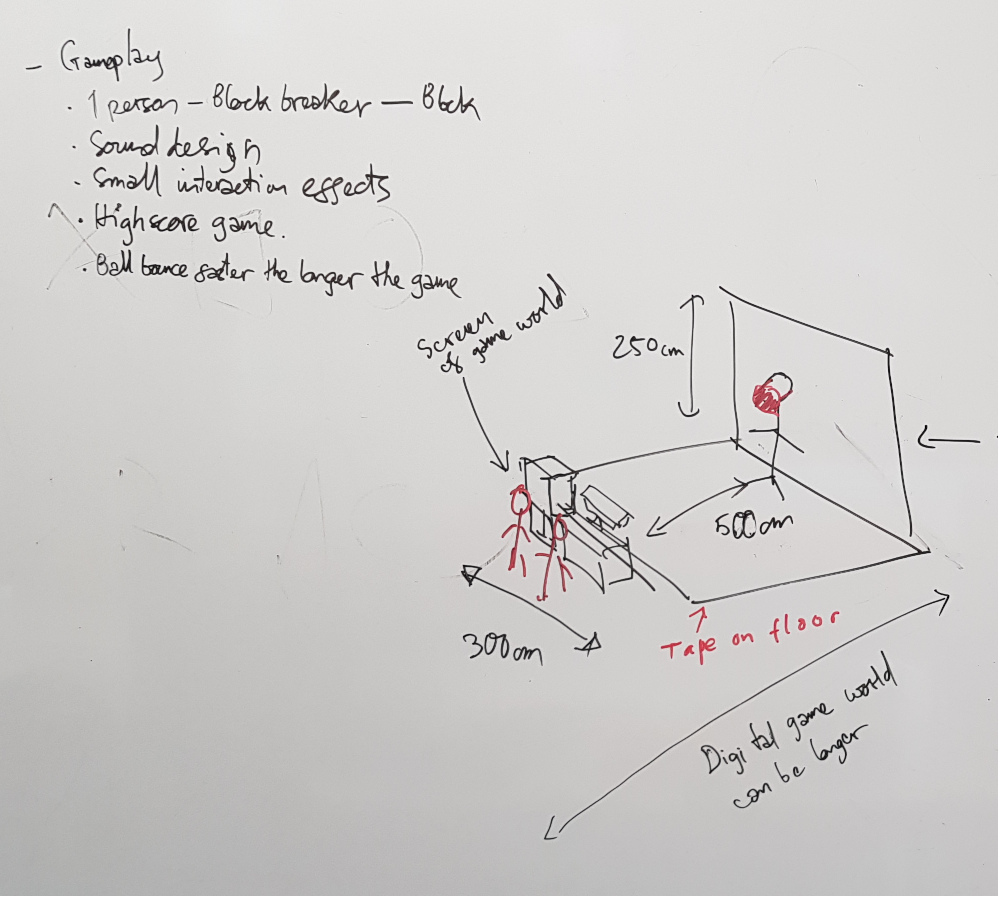 - Gameplay
· 1 person - Block breaker - Block
· Sound design
· Small interaction effects
· Highscore game.
· Ball bounce faster the longer the game
Screen
of game world
250cm
500cm
300cm
Tape on floor
Digital game world
can be larger